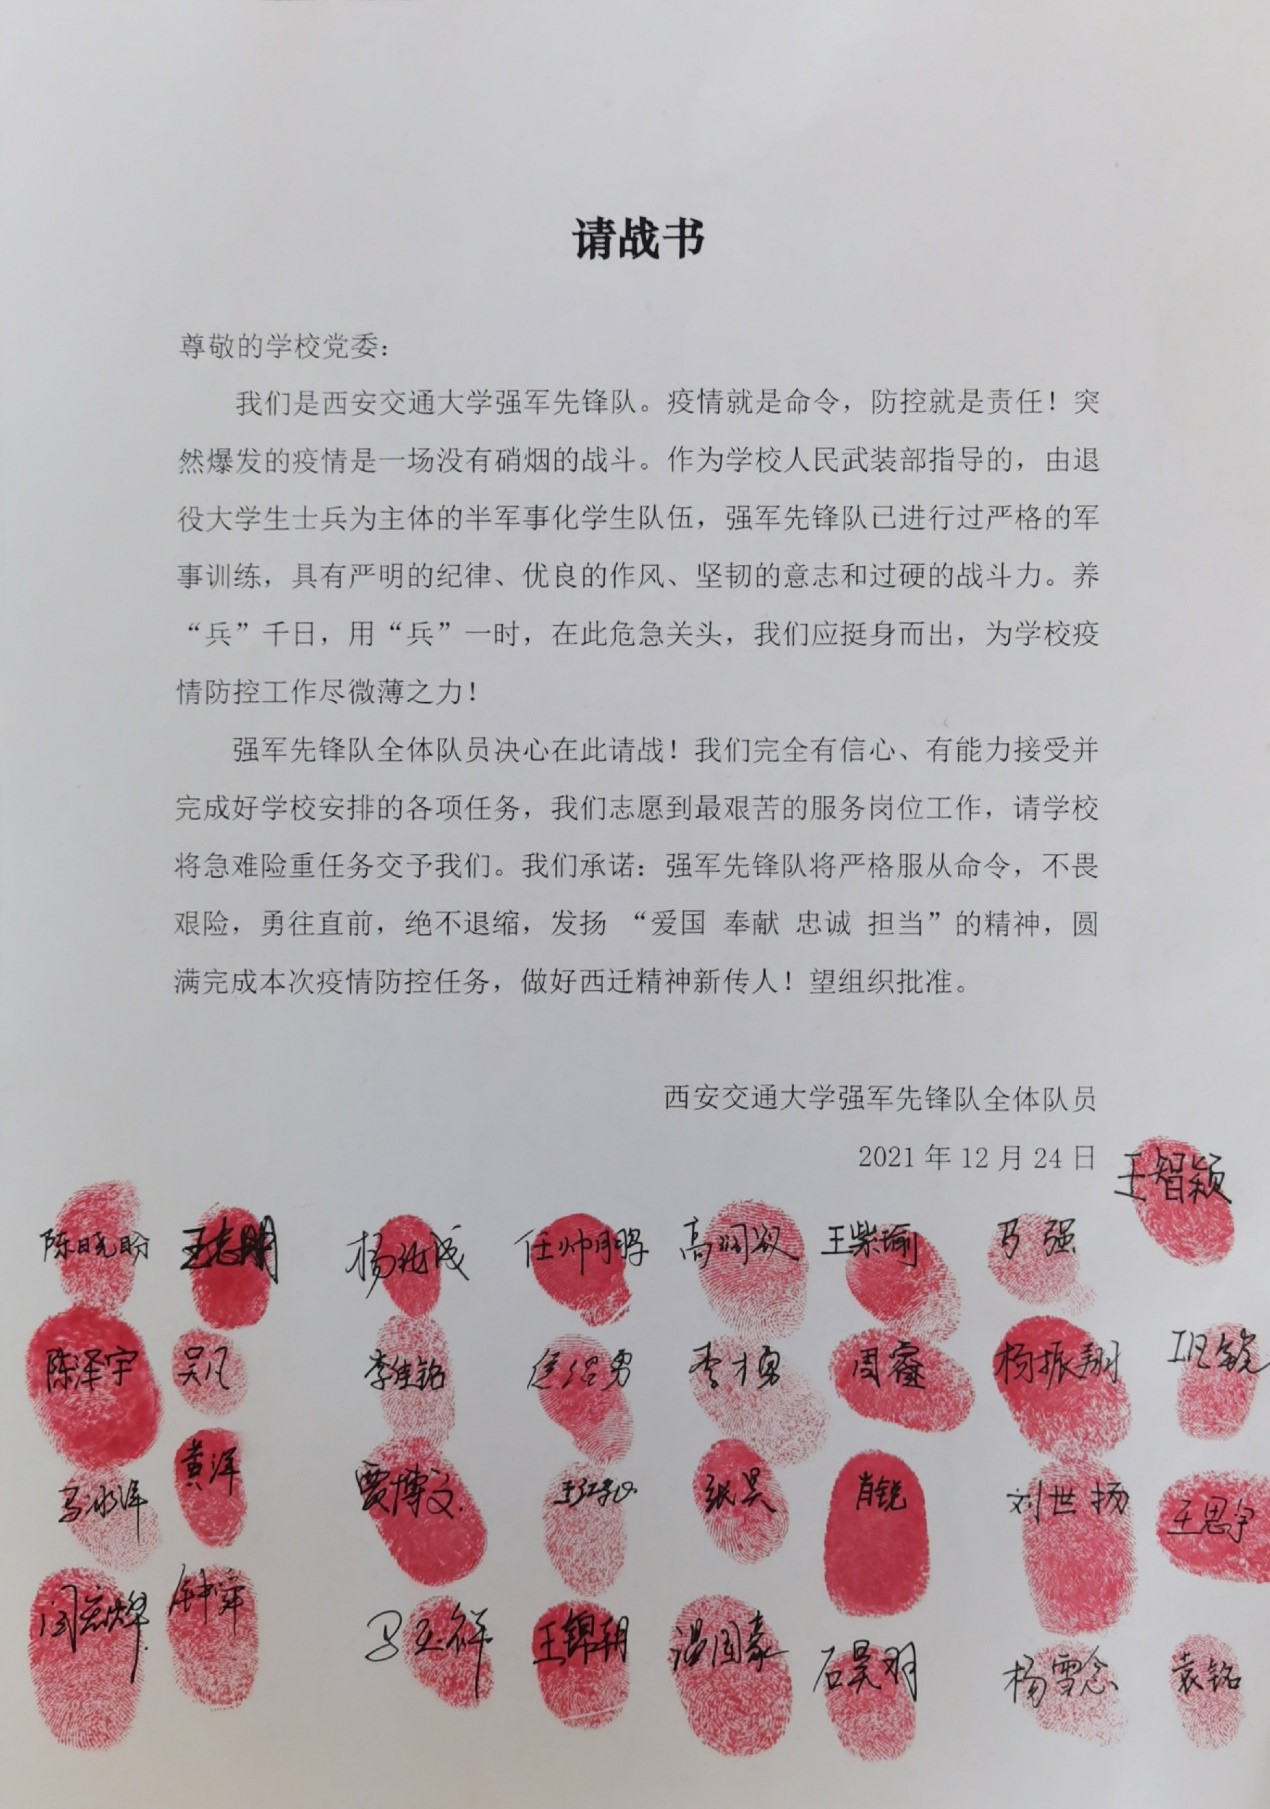 请战书
尊敬的学校党委：
我们是西安交通大学强军先锋队。疫情就是命令，防控就是责任！突
然爆发的疫情是一场没有硝烟的战斗。作为学校人民武装部指导的，由退
役大学生士兵为主体的半军事化学生队伍，强军先锋队已进行过严格的军
事训练，具有严明的纪律、优良的作风、坚韧的意志和过硬的战斗力。养
“兵”千日，用“兵”一时，在此危急关头，我们应挺身而出，为学校疫
情防控工作尽微薄之力！
强军先锋队全体队员决心在此请战！我们完全有信心、有能力接受并
完成好学校安排的各项任务，我们志愿到最艰苦的服务岗位工作，请学校
将急难险重任务交予我们。我们承诺：强军先锋队将严格服从命令，不畏
艰险，勇往直前，绝不退缩，发扬 “爱国 奉献 忠诚 担当”的精神，圆
满完成本次疫情防控任务，做好西迁精神新传人！望组织批准。
西安交通大学强军先锋队全体队员
2021 年 12 月 24 日
王智颖
陈晓盼 王志鹏 任帅鹏 王柴瑜 马强
陈泽宇 吴凡 李佳铭 李才勇 周睿 杨振翔
黄洋 贾博文 张昊 肖锐 刘世扬 王思宇
钟舜 王锦朝 温国豪 石昊羽 杨雪念 袁铭